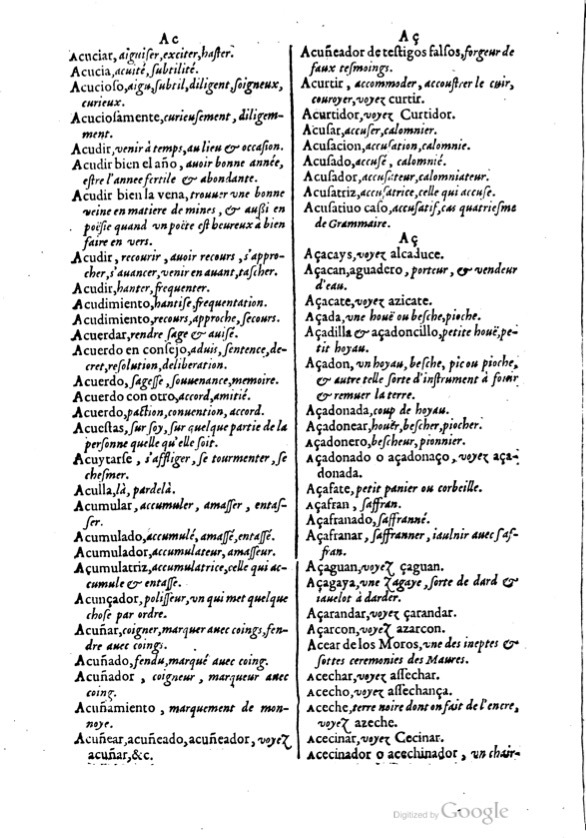 Ac
Acuciar, aiguiser, exciter, haster.
Acucia, acuité, subtilité.
Acucioso, aigu, subtil, diligent, soigneux,
curieux.
Acuciosamente, curieusement, diligem-
ment.
Acudir, venir à temps, au lieu & occasion.
Acudir bien el año, auoir bonne année,
estre l'annee fertile & abondante.
Acudir bien la vena, trouuer vne bonne
veine en matiere de mines, & aussi en
poësie quand vn poëte est heureux à bien
faire en vers.
Acudir, recourir, auoir recours, s'appro-
cher, s'auancer, venir en auant, tascher.
Acudir, hanter, frequenter.
Acudimiento, hantise, frequentation.
Acudimiento, recours, approche, secours.
Acuerdar, rendre sage & auisé.
Acuerdo en consejo, aduis, sentence, de-
cret, resolution, deliberation.
Acuerdo, sagesse, souuenance, memoire.
Acuerdo con otro, accord, amitié.
Acuerdo, paction, conuention, accord.
Acuestas, sur soy, sur quelque partie de la
personne quelle qu'elle soit.
Acuytarse, s'affliger, se tourmenter, se
chesmer.
Aculla, là, pardelà.
Acumular, accumuler, amasser, entas-
ser.
Acumulado, accumulé, amassé, entassé.
Acumulador, accumulateur, amasseur.
Açumulatriz, accumulatrice, celle qui ac-
cumule & entasse.
Acunçador, polisseur, vn qui met quelque
chose par ordre.
Acuñar, coigner, marquer auec coings, fen-
dre auec coings.
Acuñado, fendu, marqué auec coing.
Acuñador, coigneur, marqueur auec
coing.
Acuñamiento, marquement de mon-
noye.
Acuñear, acuñeado, acuñeador, voyez
acuñar, &c.
Aç
Acuñeador de testigos falsos, forgeur de
faux tesmoings.
Acurtir, accommoder, accoustrer le cuir,
couroyer, voyez curtir.
Acurtidor, voyez Curtidor.
Acusar, accuser, calomnier.
Acusacion, accusation, calomnie.
Acusado, accusé, calomnié.
Acusador, accusateur, calomniateur.
Acusatriz, accusatrice, celle qui accuse.
Acusatiuo caso, accusatif, cas quatriesme
de Grammaire.
Aç
Açacays, voyez alcaduce.
Açacan, aguadero, porteur, & vendeur
d'eau.
Açacate, voyez azicate.
Açada, vne houë ou besche, pioche.
Açadilla & açadoncillo, petite houë, pe-
tit hoyau.
Açadon, vn hoyau, besche, pic ou pioche,
& autre telle sorte d'instrument à fouir
& remuer la terre.
Açadonada, coup de hoyau.
Açadonear, houër, bescher, piocher.
Açadonero, bescheur, pionnier.
Açadonado o açadonaço, voyez aça-
donada.
Açafate, petit panier ou corbeille.
Açafran, saffran.
Açafranado, saffranné.
Açafranar, saffranner, iaulnir auec saf-
fran.
Açaguan, voyez çaguan.
Açagaya, vne zagaye, sorte de dard &
iauelot à darder.
Açarandar, voyez çarandar.
Açarcon, voyez azarcon.
Acear de los Moros, vne des ineptes &
sottes ceremonies des Maures.
Acechar, voyez assechar.
Acecho, voyez assechança.
Aceche, terre noire dont on fait de l'encre,
voyez azeche.
Acecinar, voyez Cecinar.
Acecinador o acechinador, vn chair-
Digitized by Google